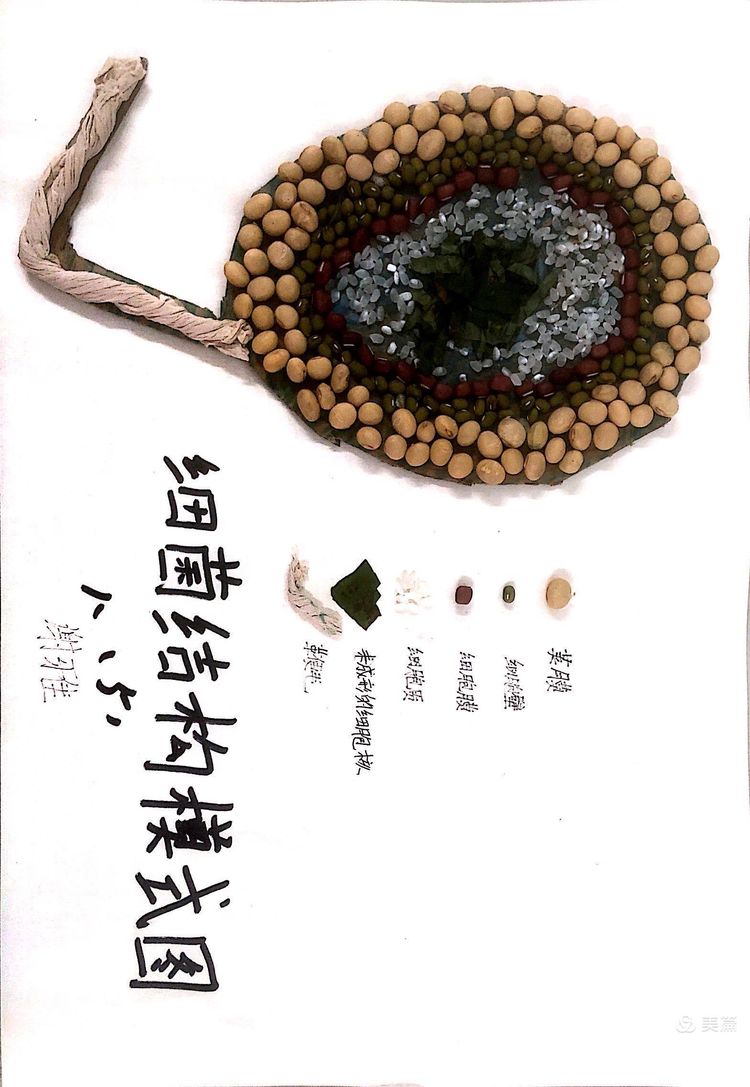 荚膜
细胞壁
细胞膜
细胞质
未成形的细胞核
鞭毛
细菌结构模式图
八.5.
美篇